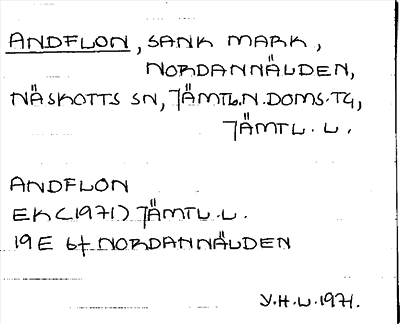 ANDFLON, SANK MARK,
NORDANNÄLDEN,
NÄSKOTTS SN, JÄMTL.N.DOMS.TG,
JÄMTL. L.
ANDFLON
EK (1971) JÄMTL. L.
19E 6f NORDANNÄLDEN
Y.H.L. 1971.